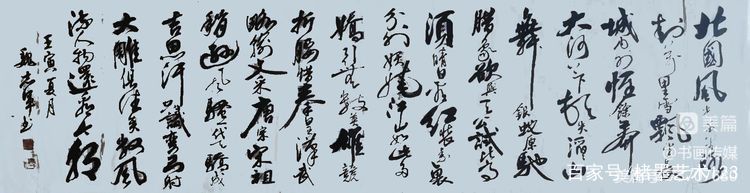 北國風光千里冰
封萬里雪飄
城内外惟餘莽
大河上下頓失滔
舞銀蛇原馳
腊象欲與天公試比高
須晴日看紅裝素裹
分外妖嬈江山如此多
嬌引無數英雄競
折腰惜秦皇漢武
略輸文采唐宗宋祖
稍遜風騷一代天驕成
吉思汗只識彎弓射
大雕俱往矣數風
流人物還看今朝
壬寅夏月
書
美篇
@书画传媒
百家号/楮墨艺术